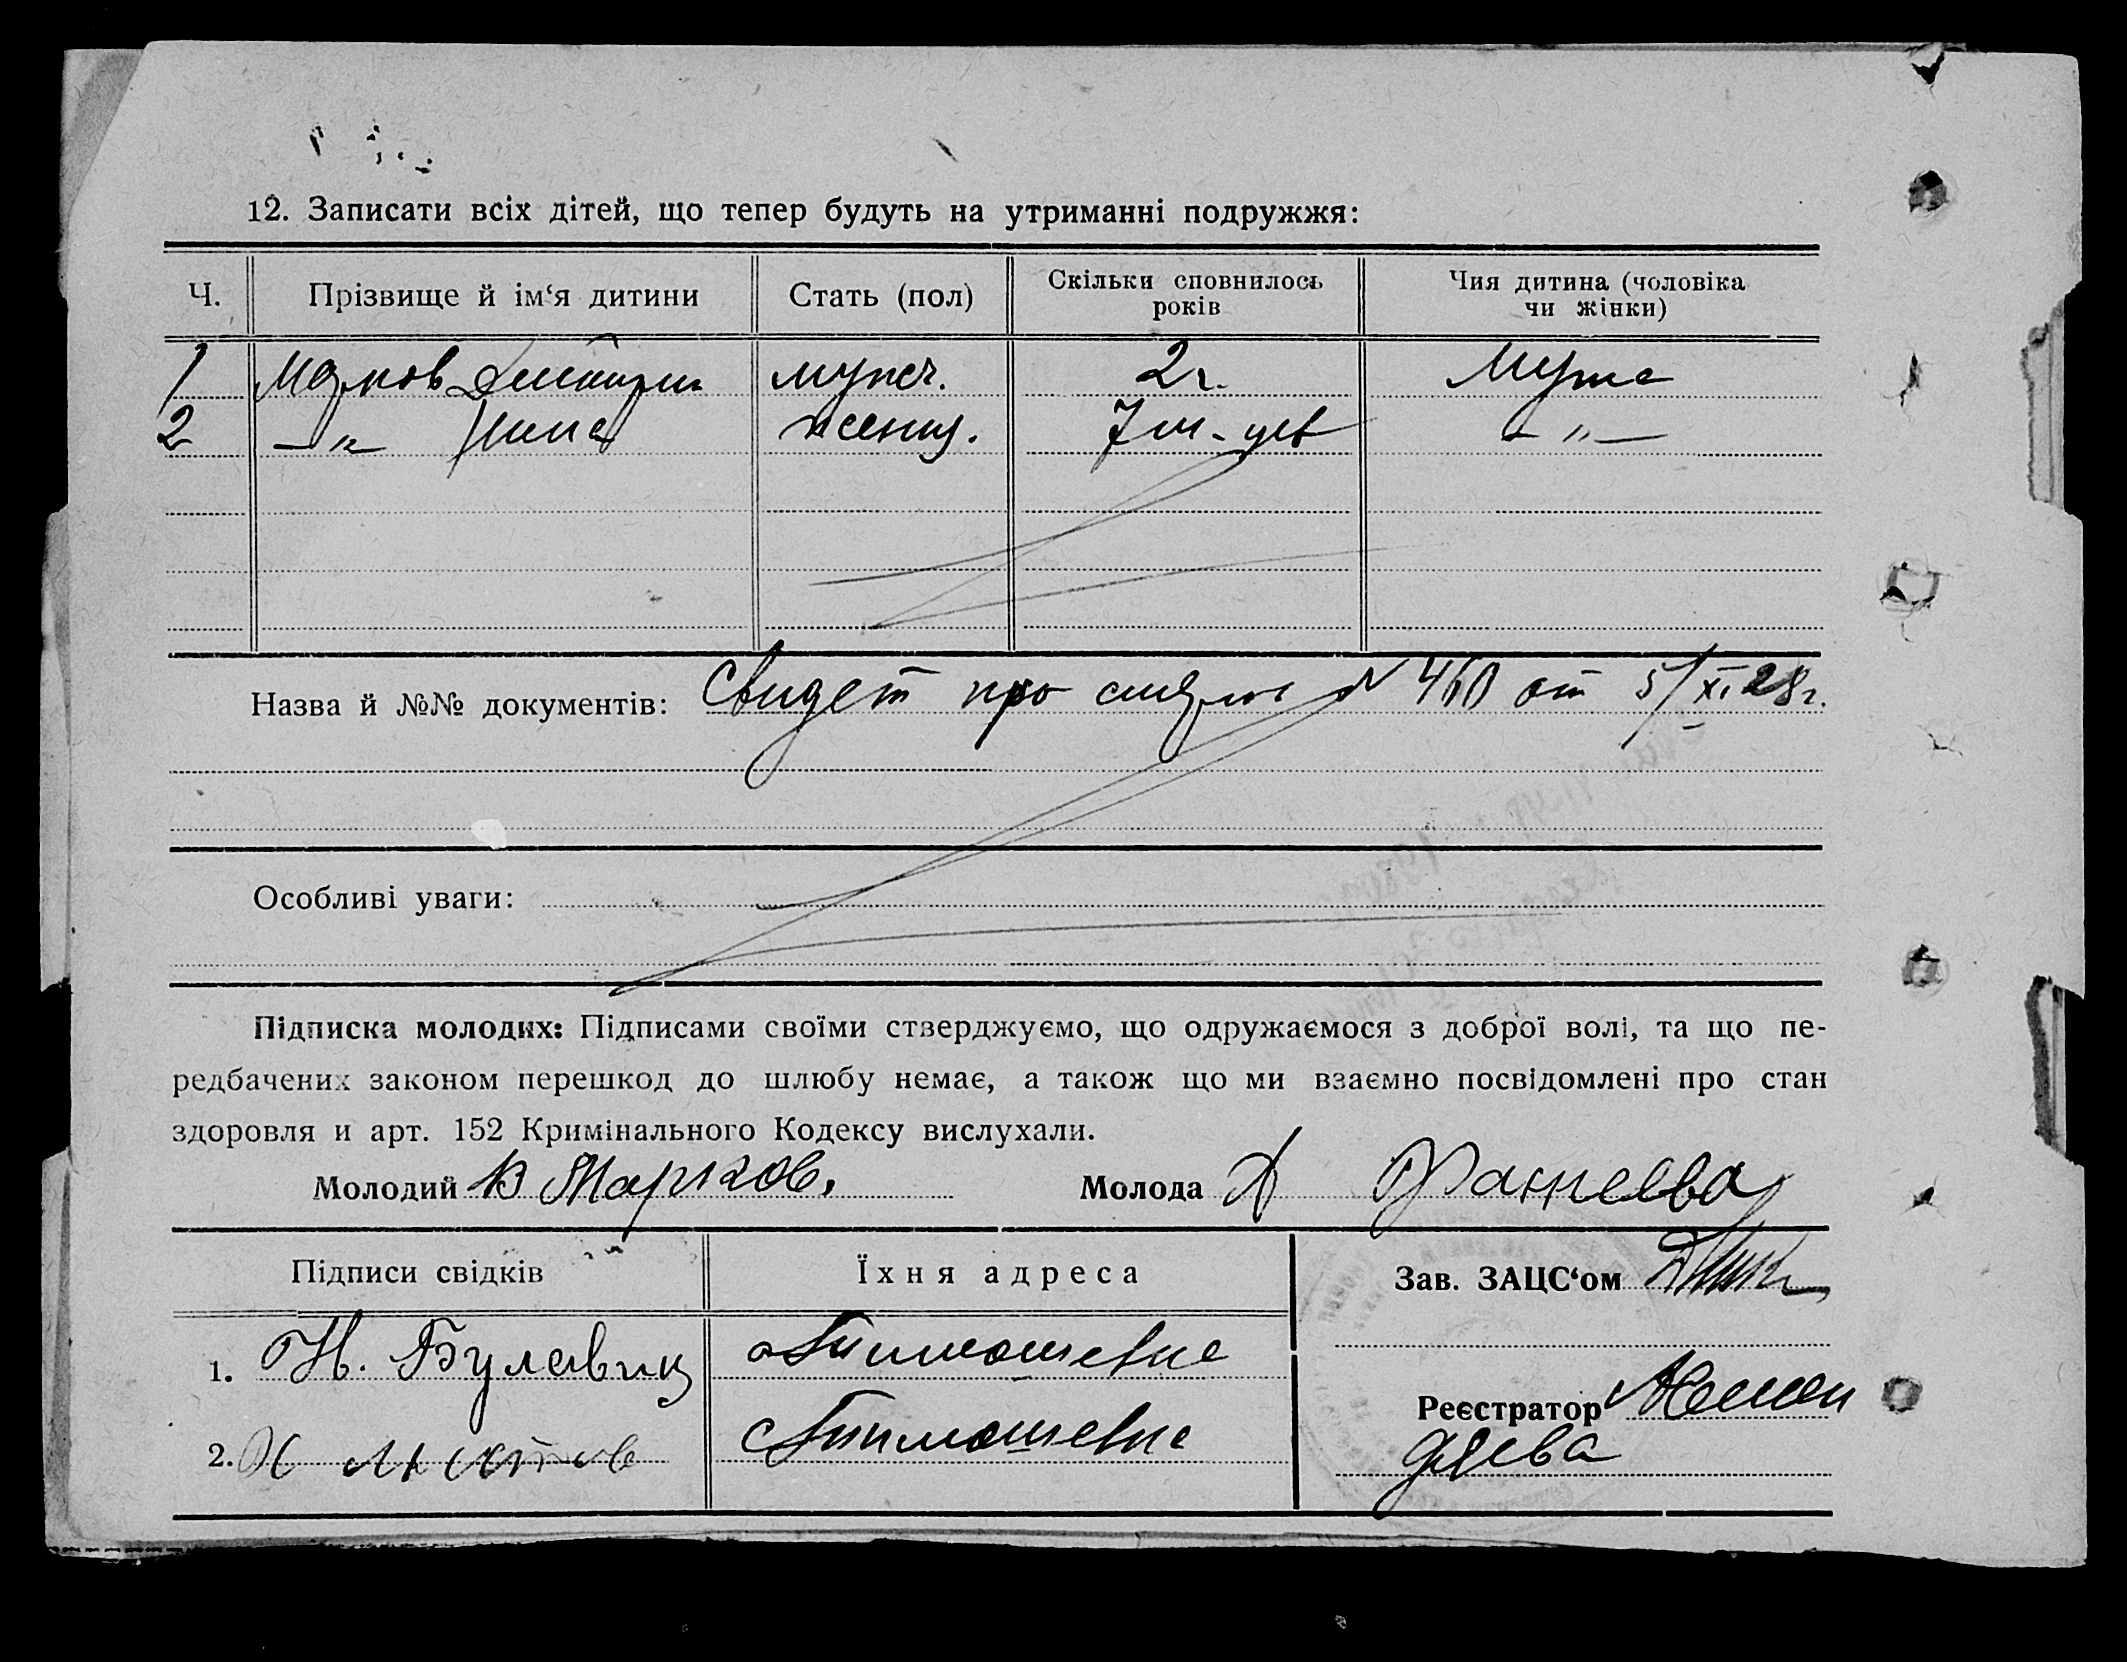 12. Записати всіх дітей, що тепер будуть на утриманні подружжя:
Ч. Прізвище й ім‘я дитини Стать (пол) Скільки сповнилось років Чия дитина (чоловіка чи жінки)
1 Марков Дмитрий мужч. 2 г. Мужа
2 —"— Нина женщ. 7 м-цев —"—
Назва й №№ документів: Свидет про смерть № 460 от 5/XI 28 г.
Особливі уваги:
Підписка молодих: Підписами своїми стверджуємо, що одружаємося з доброї волі, та що пе-
редбачених законом перешкод до шлюбу немає, а також що ми взаємно посвідомлені про стан
здоровля и арт. 152 Кримінального Кодексу вислухали.
Молодий В Марков. Молода А
Підписи свідків Їхня адреса Зав. ЗАЦС‘ом
1. Н. Булавиц
Реєстратор
2.